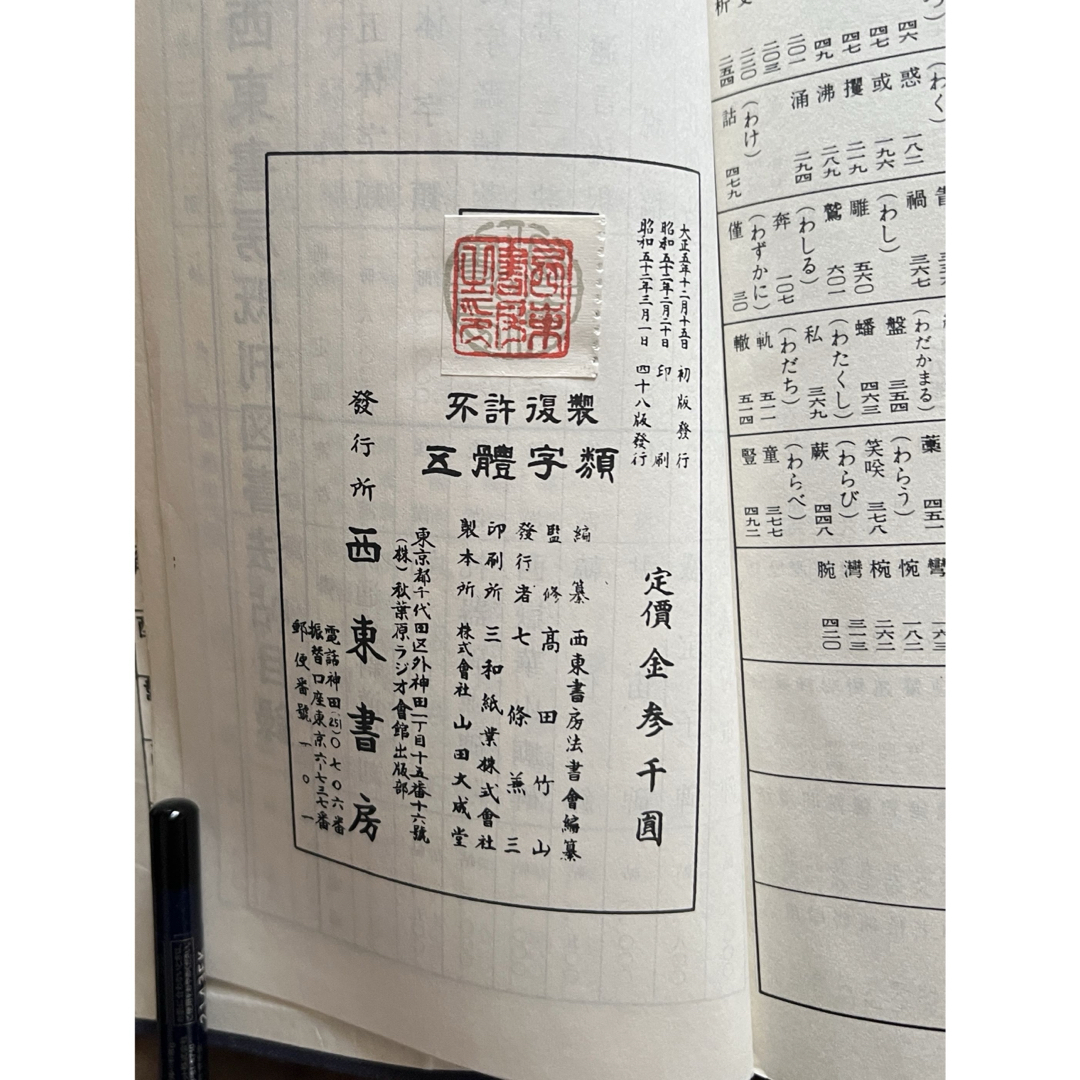 惑 一八二
或 一九六
攫 二一九
沸 二八九
涌 二九四
(わけ)
詁 四七九
禍 三六七
(わし)
雕 五六〇
鷲 六〇二
(わしる)
奔 一〇七
(わずかに)
僅 三〇
(わだかまる)
盤 三五四
蟠 四六三
(わたくし)
私 三六九
(わだち)
軌 五一一
轍 五一四
藁 四五一
(わらう)
笑咲 三七八
(わらび)
蕨 四四八
(わらべ)
童 三七七
豎 四九二
彎
惋 一八二
椀 二六二
灣 三一三
腕 四二〇
大正五年十二月十五日 初版發行
昭和五十二年二月二十日 印刷
昭和五十二年三月一日 四十八版發行
西東書房之印
不許復製
五體字類
定價金参千圓
編纂 西東書房法書會編纂
監修 髙田竹山
發行者 七條兼三
印刷所 三和紙業株式會社
製本所 株式會社 山田大成堂
東京都千代田区外神田一丁目十五番十六號
(株)秋葉原ラジオ會館出版部
發行所 西東書房
電話神田(251)〇七〇六番
振替口座東京六-七三七番
郵便番號一〇一